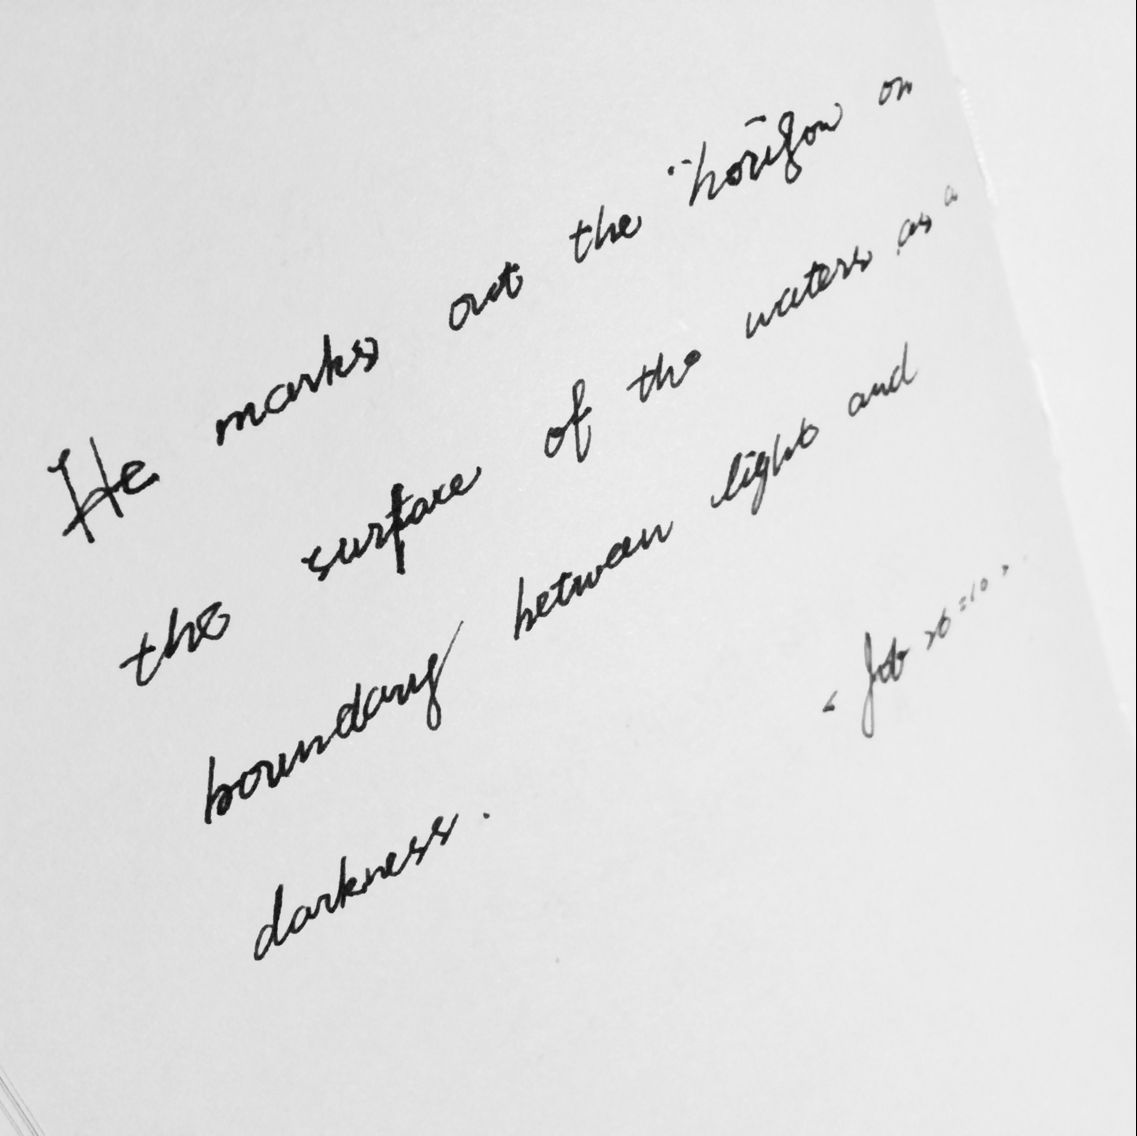 He marks out the "horizon on
the surface of the waters as a
boundary between light and
darkness.
Job 26:10